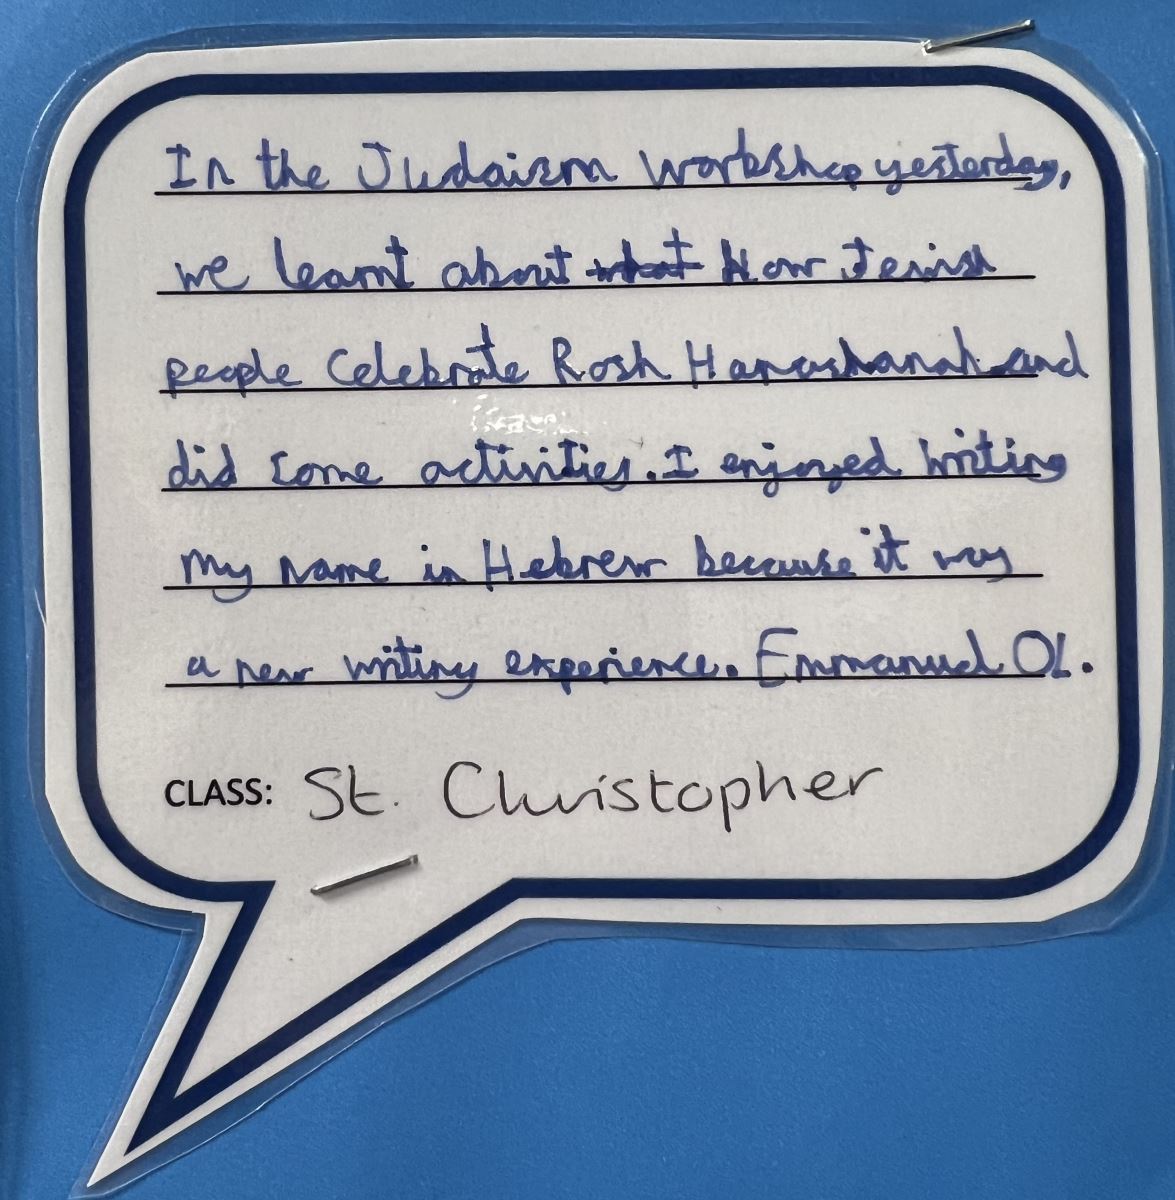 In the Judaism Workshop yesterday,
we learnt about what How Jewish
people Celebrate Rosh Harashanah and
did some activities. I enjoyed writing
my name in Hebrew because it was
a new writing experience. Emmanuel Ol.
CLASS: St. Christopher